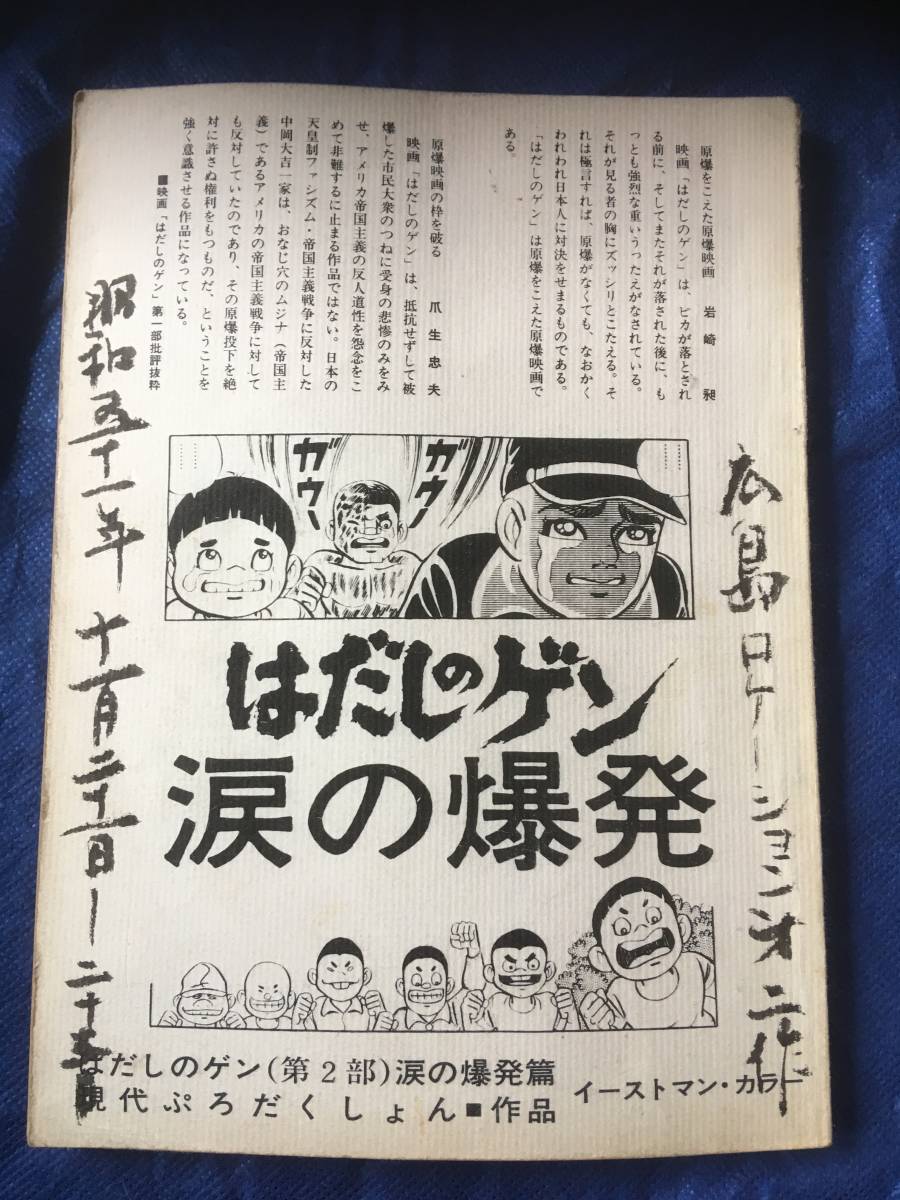 原爆をこえた原爆映画　岩崎昶
映画「はだしのゲン」は、ピカが落とされ
る前に、そしてまたそれが落された後に、も
っとも強烈な重いうったえがなされている。
それが見る者の胸にズッシリとこたえる。そ
れは極言すれば、原爆がなくても、なおかく
われわれ日本人に対決をせまるものである。
「はだしのゲン」は原爆をこえた原爆映画で
ある。
原爆映画の枠を破る　爪生忠夫
映画「はだしのゲン」は、抵抗せずして被
爆した市民大衆のつねに受身の悲惨のみをみ
せ、アメリカ帝国主義の反人道性を怨念をこ
めて非難するに止まる作品ではない。日本の
天皇制ファシズム・帝国主義戦争に反対した
中岡大吉一家は、おなじ穴のムジナ（帝国主
義）であるアメリカの帝国主義戦争に対して
も反対していたのであり、その原爆投下を絶
対に許さぬ権利をもつものだ、ということを
強く意識させる作品になっている。
■映画「はだしのゲン」第一部批評抜粋
広島ロケーション 才二作
ガウー
ガウー
はだしのゲン
涙の爆発
はだしのゲン(第2部)涙の爆発篇
現代ぷろだくしょん■作品
イーストマン・カラー
昭和五十一年 十一月二十一日ー二十五